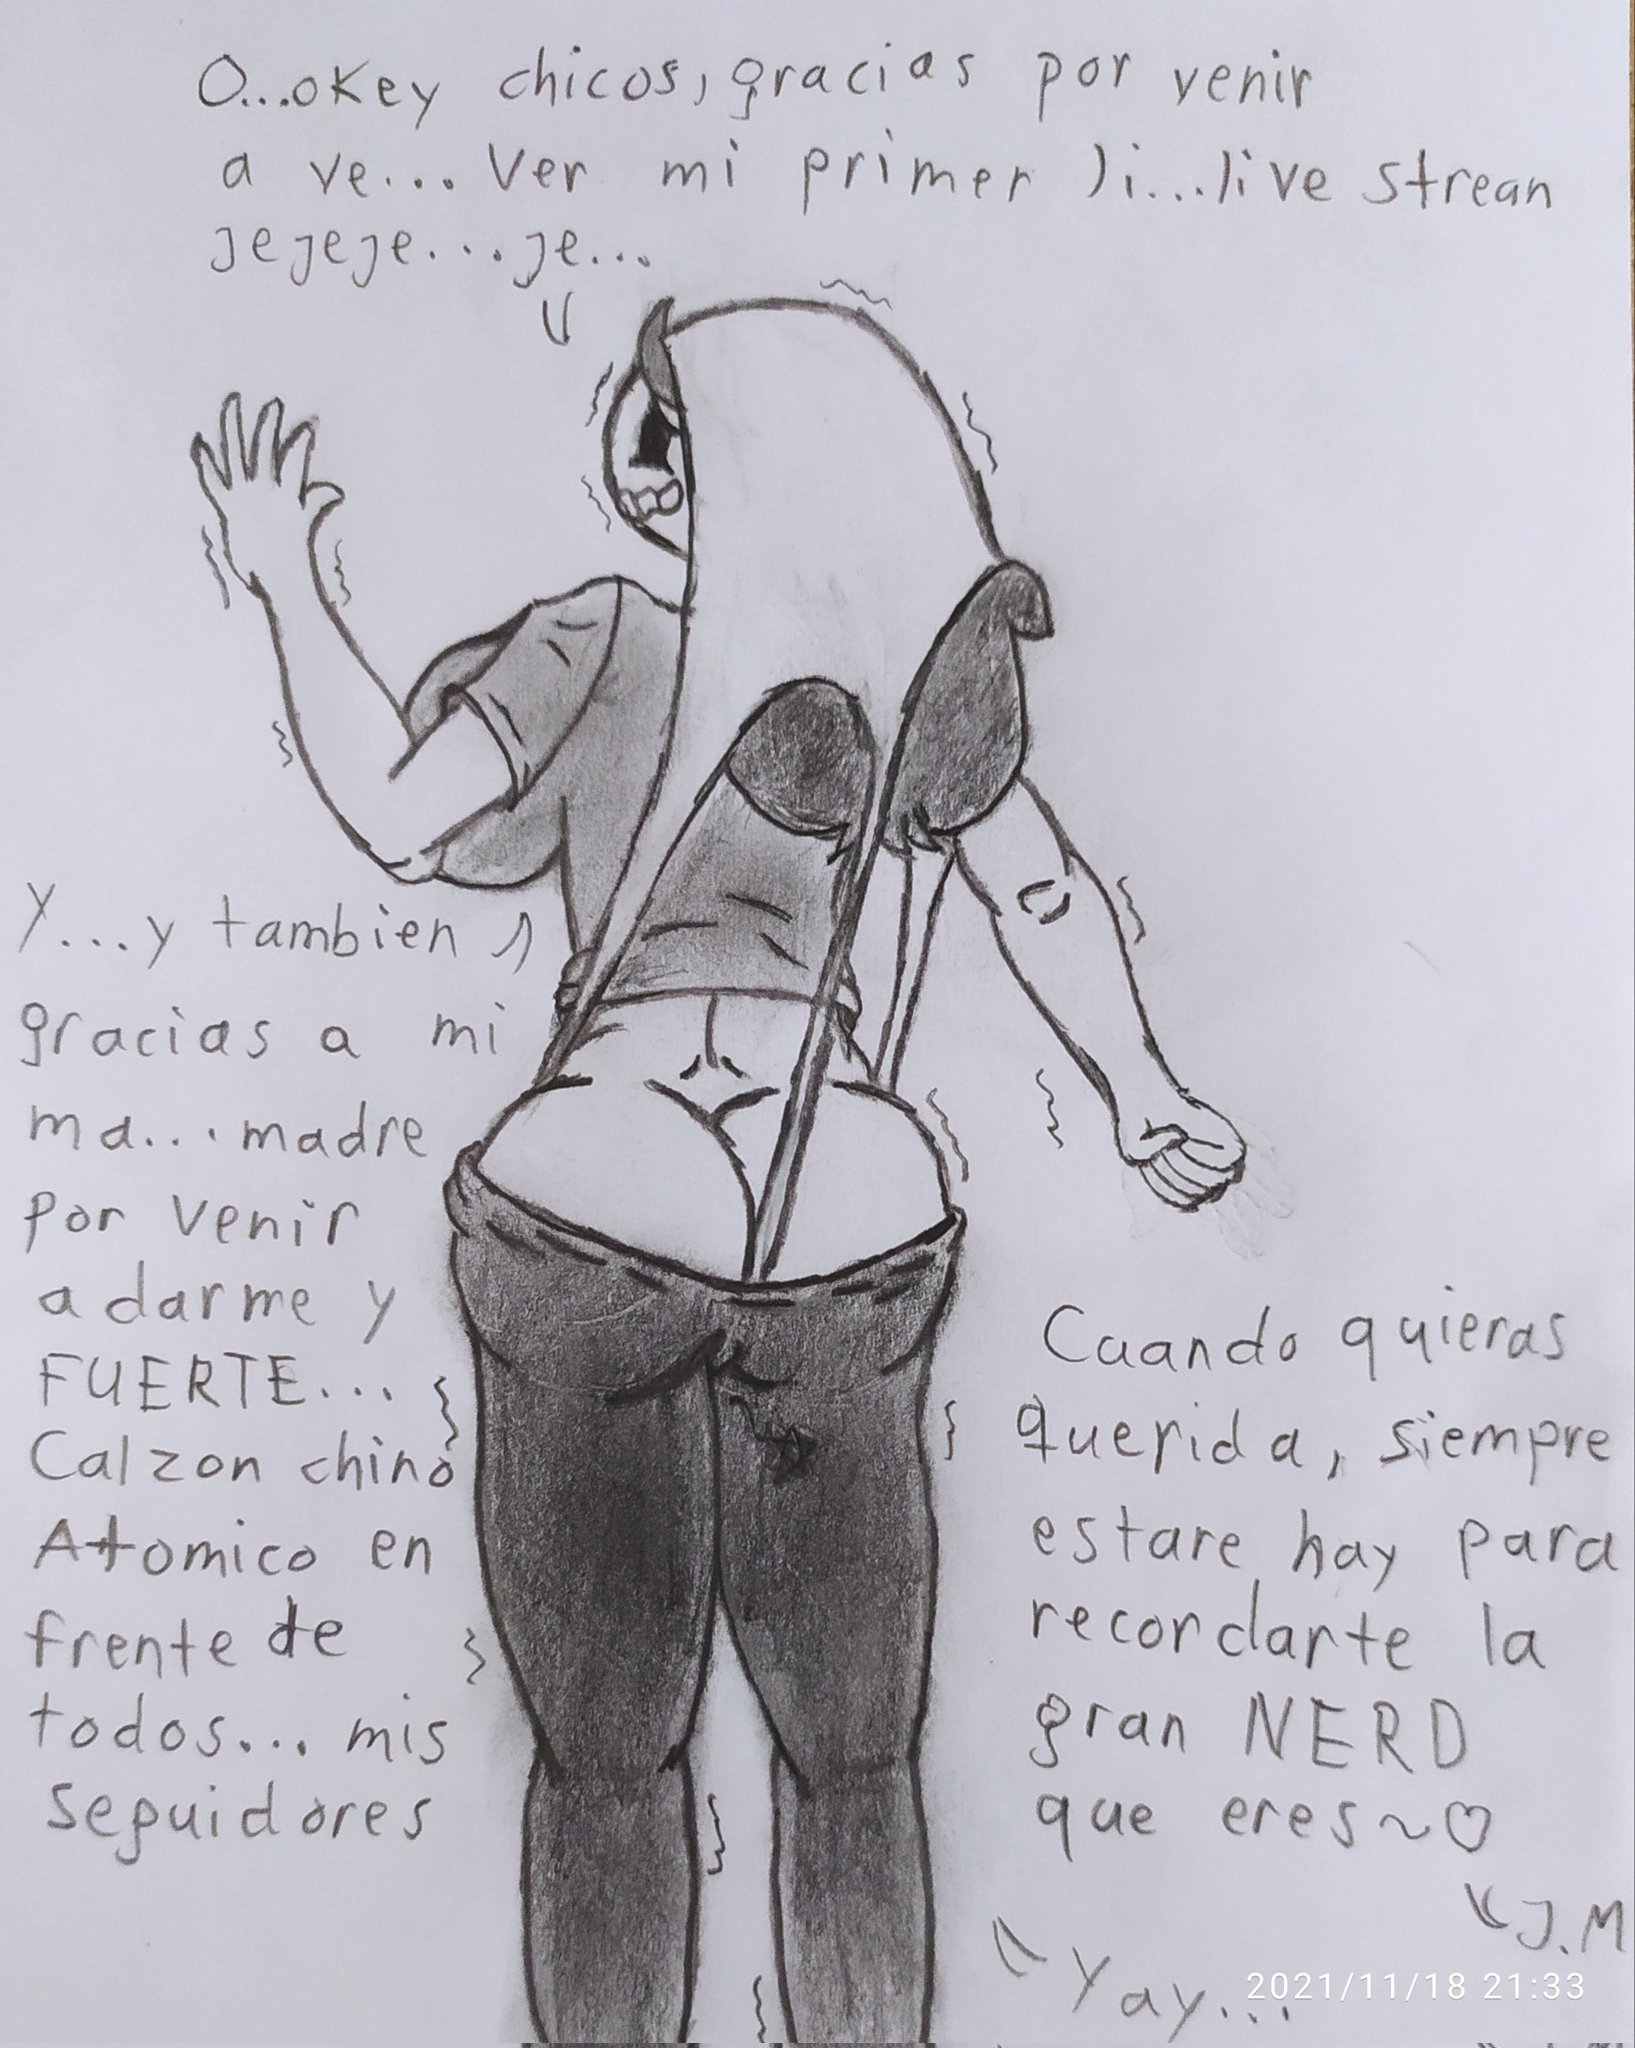 O...okey chicos, gracias por venir
a ve... ver mi primer li...live strean
jejeje...je...
Y...y tambien
gracias a mi
ma...madre
por venir
a darme y
FUERTE...
Calzon chino
Atomico en
frente de
todos... mis
seguidores
Cuando quieras
querida, siempre
estare hay para
recordarte la
gran NERD
que eres~♡
J.M
Yay...
2021/11/18 21:33